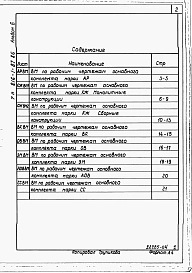 2
Альбом 8
Т.П.
Содержание
Лист Наименование Стр
АР.ВМ ВМ по рабочим чертежам основного
комплекта марки АР 3-5
ВМ по рабочим чертежам основного
комплекта марки КЖ Монолитные
конструкции 6-9
ВМ по рабочим чертежам основного
комплекта марки КЖ Сборные
конструкции 10-13
ВМ по рабочим чертежам основного
комплекта марки ВК 14-15
ВМ по рабочим чертежам основного
комплекта марки ОВ 16-17
ВМ по рабочим чертежам основного
комплекта марки ЭМ 18-19
ВМ по рабочим чертежам основного
комплекта марки АОВ 20
ВМ по рабочим чертежам основного
комплекта марки СС 21
Копировал
Формат А4